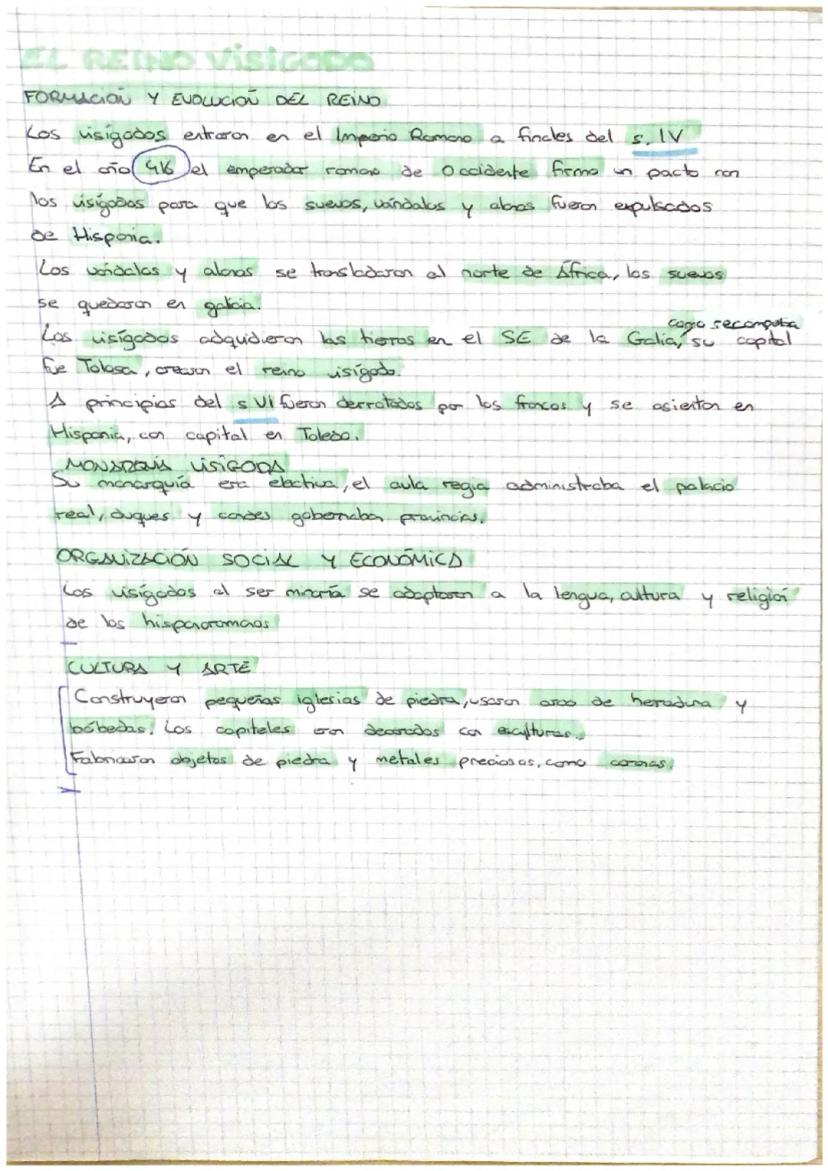 EL REINO VISIGODO
FORMACIÓN Y EVOLUCIÓN DEL REINO
Los visígodos entraron en el Imperio Romano a finales del s. IV
En el año 416 el emperador romano de Occidente firmo un pacto con
los visígodos para que los suevos, vándalos y alanos fueron expulsados
de Hispania.
Los vándalos y alanos se transladaron al norte de África, los suevos
se quedaron en galicia.
como recompensa
Los visígodos adquidieron las tierras en el SE de la Galia, su capital
fue Tolosa, crearon el reino visígodo.
A principios del s VI fueron derrotados por los francos y se asientan en
Hispania, con capital en Toledo.
MONARQUÍA VISIGODA
Su monarquía era electiva, el aula regia administraba el palacio
real, duques y condes gobernaban provincias.
ORGANIZACIÓN SOCIAL Y ECONÓMICA
Los visígodos al ser minoría se adaptaron a la lengua, cultura y religión
de los hispanoromanos
CULTURA Y ARTE
Construyeron pequeñas iglesias de piedra, usaron arco de herradura y
bóbedas. Los capiteles eran decorados con esculturas.
Fabricaron objetos de piedra y metales preciosos, como coronas.